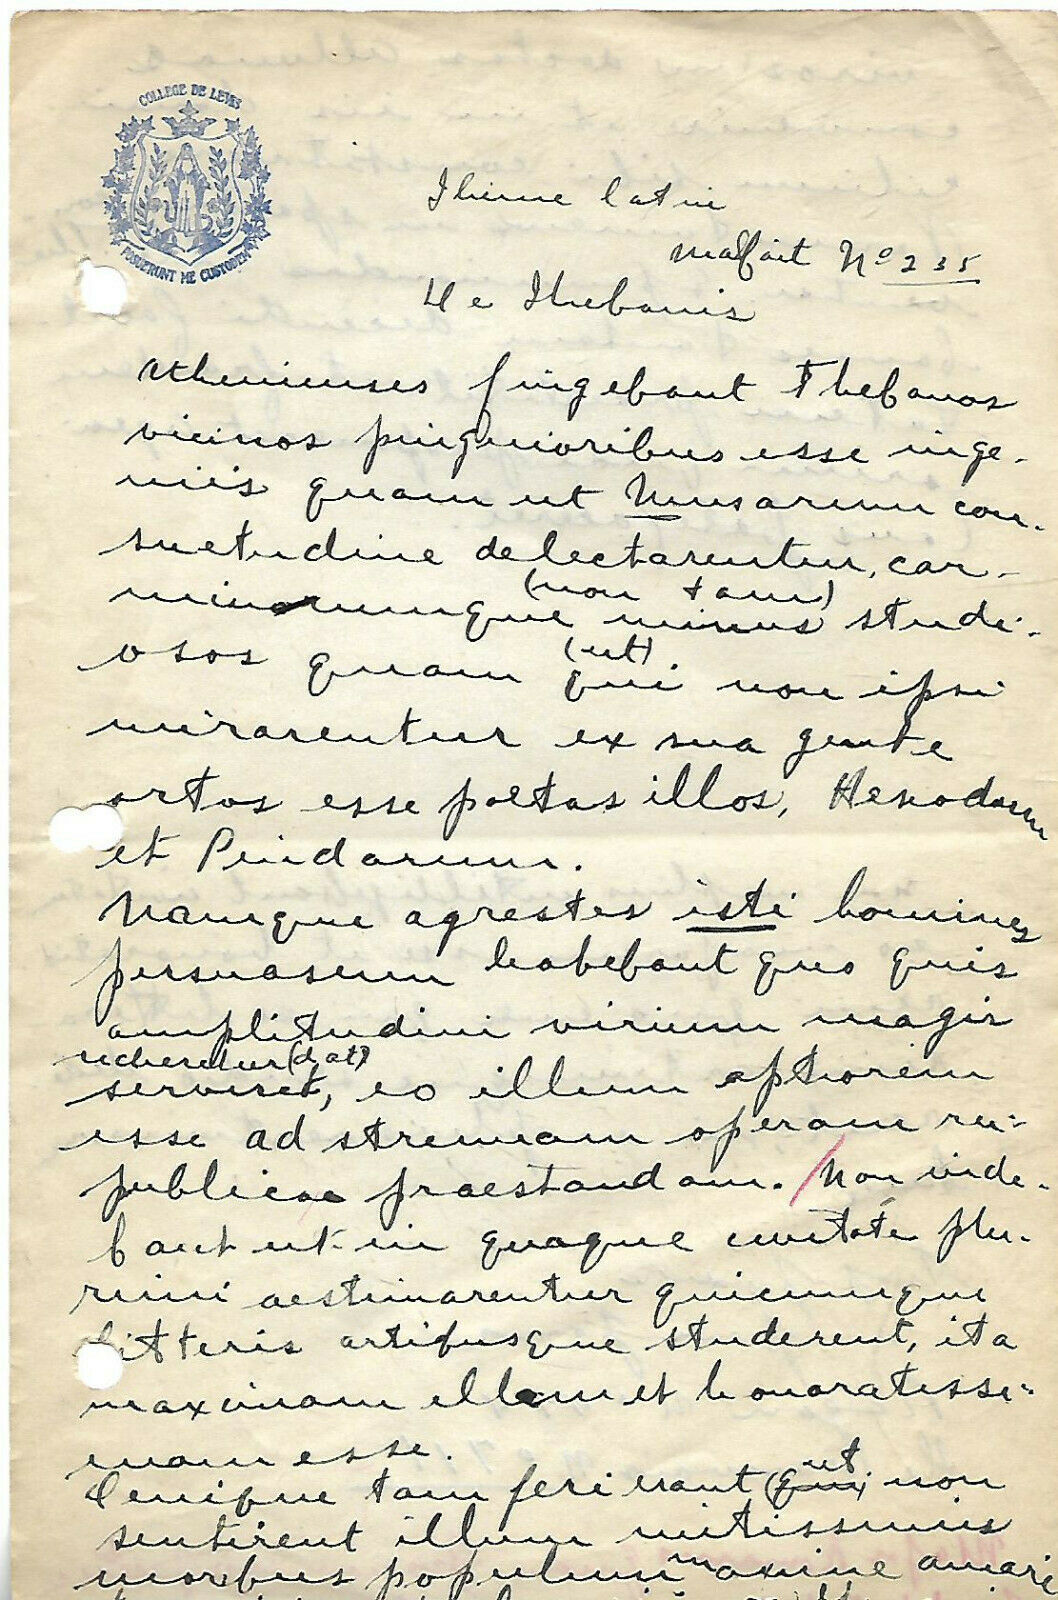 COLLEGE DE LEVIS
POSUERUNT ME CUSTODEM
Thème latin
Malfait No 235
De Thebanis
Athenienses fingebant Thebanos
vicinos pinguioribus esse inge-
niis quam ut Musarum con-
suetudine delectarentur, car-
(non tam)
minumque minus studi-
osos quam (ut) qui non ipsi
mirarentur ex sua gente
ortos esse poetas illos, Hesiodum
et Pindarum.
Namque agrestes isti homines
persuasum habebant quo quis
amplitudini virium magis
(dat)
serviret, eo illum aptiorem
esse ad strenuam operam rei-
publicae praestandam. / Non vide-
bant ut in quaque civitate plu-
rimi aestimarentur quicumque
litteris artibusque studerent, ita
maximam illam et honoratissi-
mam esse.
Denique tam feri erant (qui) ut non
sentirent illum mitissimis
moribus populum maxime amari